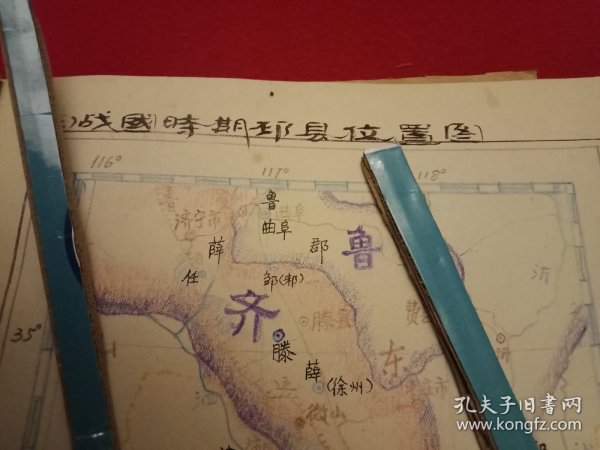 战國時期邳县位置图
116°
117°
118°
鲁
济宁市
曲阜
鲁
曲阜
薛
郡
鲁
任
邹(邾)
沂
齐
滕县
费
35°
滕
东
沂
薛
(徐州)
微山
孔夫子旧书网
www.kongfz.com